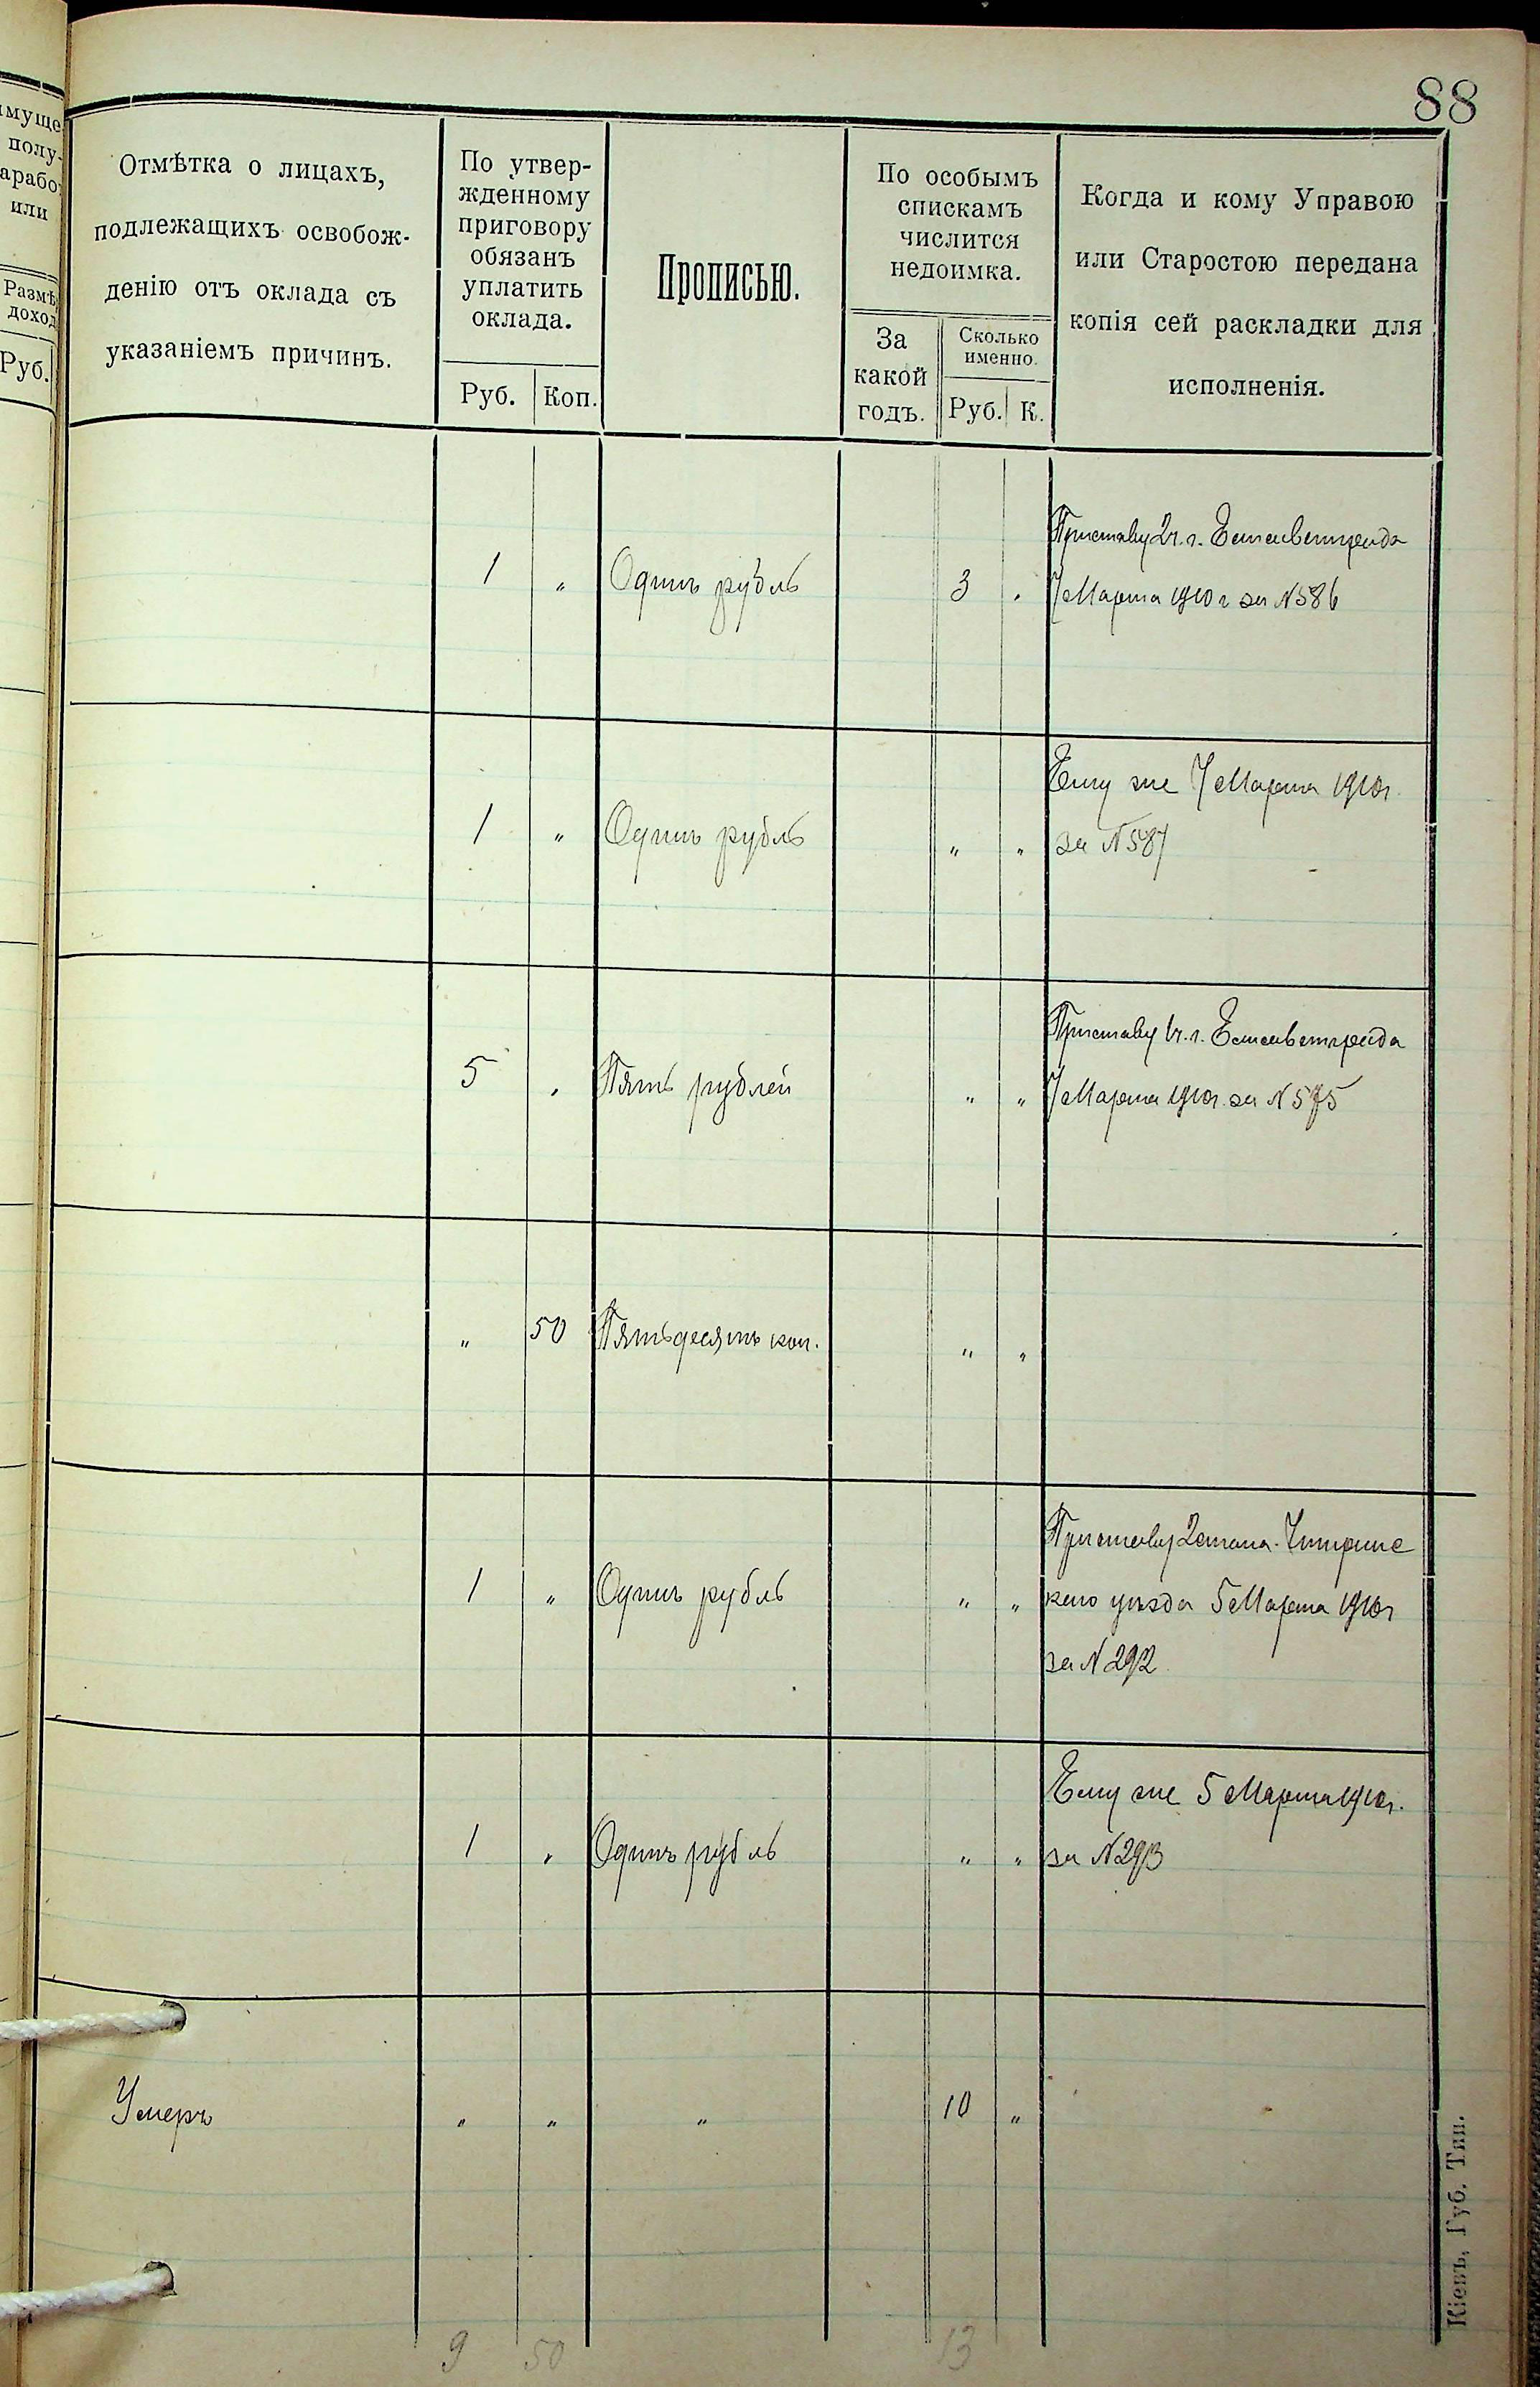 88
муще
полу-
арабо
или
Размѣ
доход
Руб.
Отмѣтка о лицахъ,
подлежащихъ освобож-
денію отъ оклада съ
указаніемъ причинъ.
По утвер-
жденному
приговору
обязанъ
уплатить
оклада.
Руб. Коп.
Прописью.
По особымъ
спискамъ
числится
недоимка.
За
какой
годъ.
Сколько
именно.
Руб. К.
Когда и кому Управою
или Старостою передана
копія сей раскладки для
исполненія.
Приставу 2 ч. г. Елисаветграда
1 " Одинъ рубль 3 " 7 Марта 1910 г за N 586
Ему же 7 Марта 1910 г.
1 " Одинъ рубль " " за N 587
Приставу 1 ч. г. Елисаветграда
5 " Пять рублей " " 7 Марта 1910 г. за N 575
" 50 Пятьдесятъ коп. " "
Приставу 2 стана Чигринс
1 " Одинъ рубль " " каго уѣзда 5 Марта 1910 г
за N 292
Ему же 5 Марта 1910 г.
1 " Одинъ рубль " " за N 293
Умеръ " " " 10 "
9 50 13
Кіевъ, Губ. Тип.